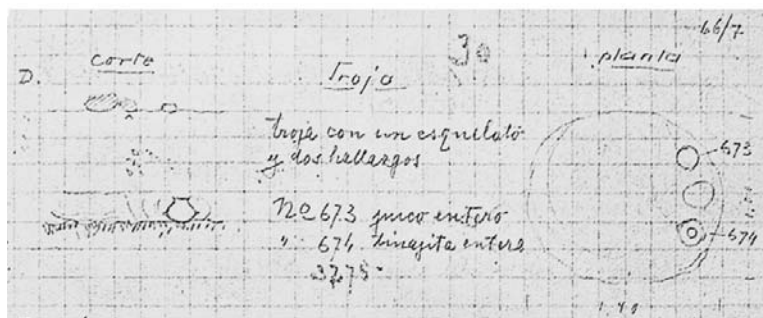 66/7
30
D.
corte
Troja
planta
troja con un esqueleto
y dos hallazgos
673
Nº 673 puco entero
" 674 tinajita entera
674
3775
1.40